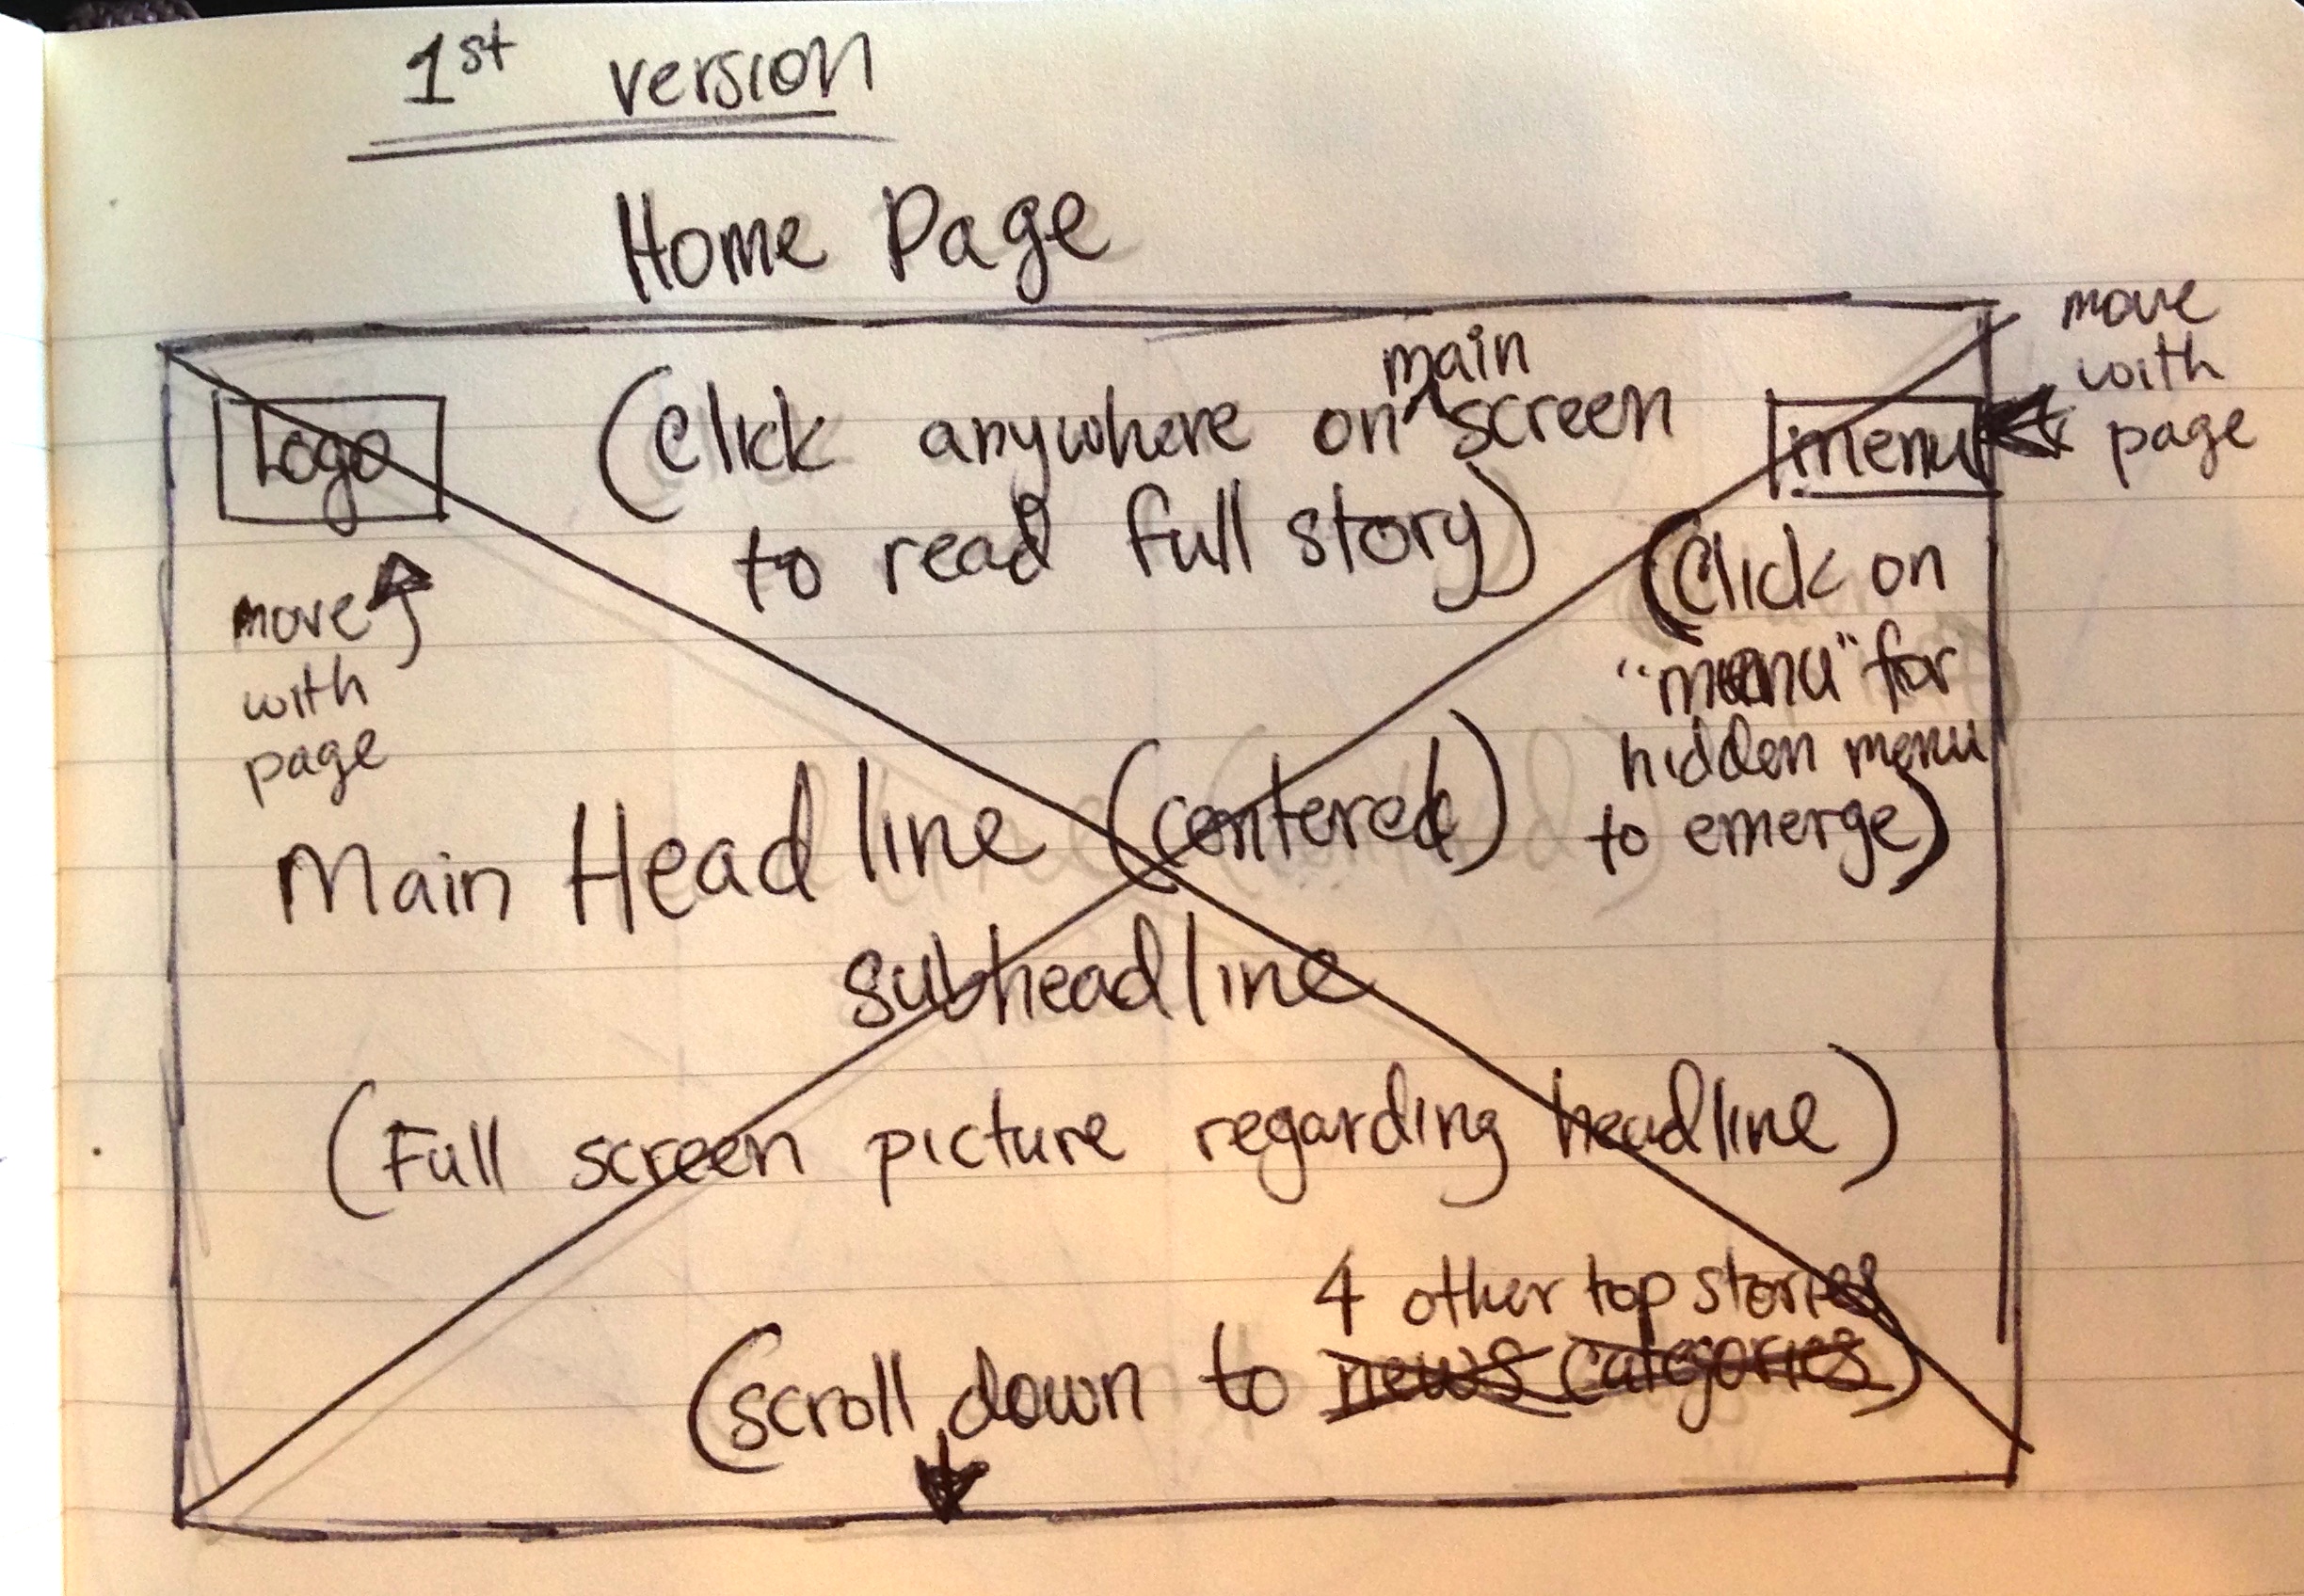 1st version
Home Page
Logo
(Click anywhere on main screen
to read full story)
menu
move
with
page
move
with
page
(Click on
"menu" for
hidden menu
to emerge)
Main Headline (centered)
subheadline
(Full screen picture regarding headline)
4 other top stories
(scroll down to news categories)